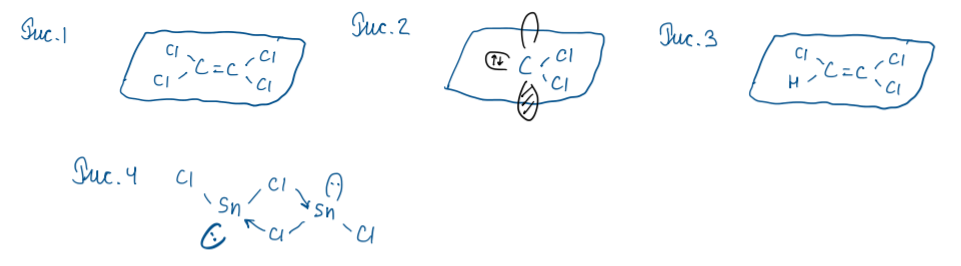 Рис.1
Cl Cl
C=C
Cl Cl
Рис.2
⇅ C Cl
Cl
Рис.3
Cl Cl
C=C
H Cl
Рис.4
Cl Cl
Sn Sn
Cl Cl